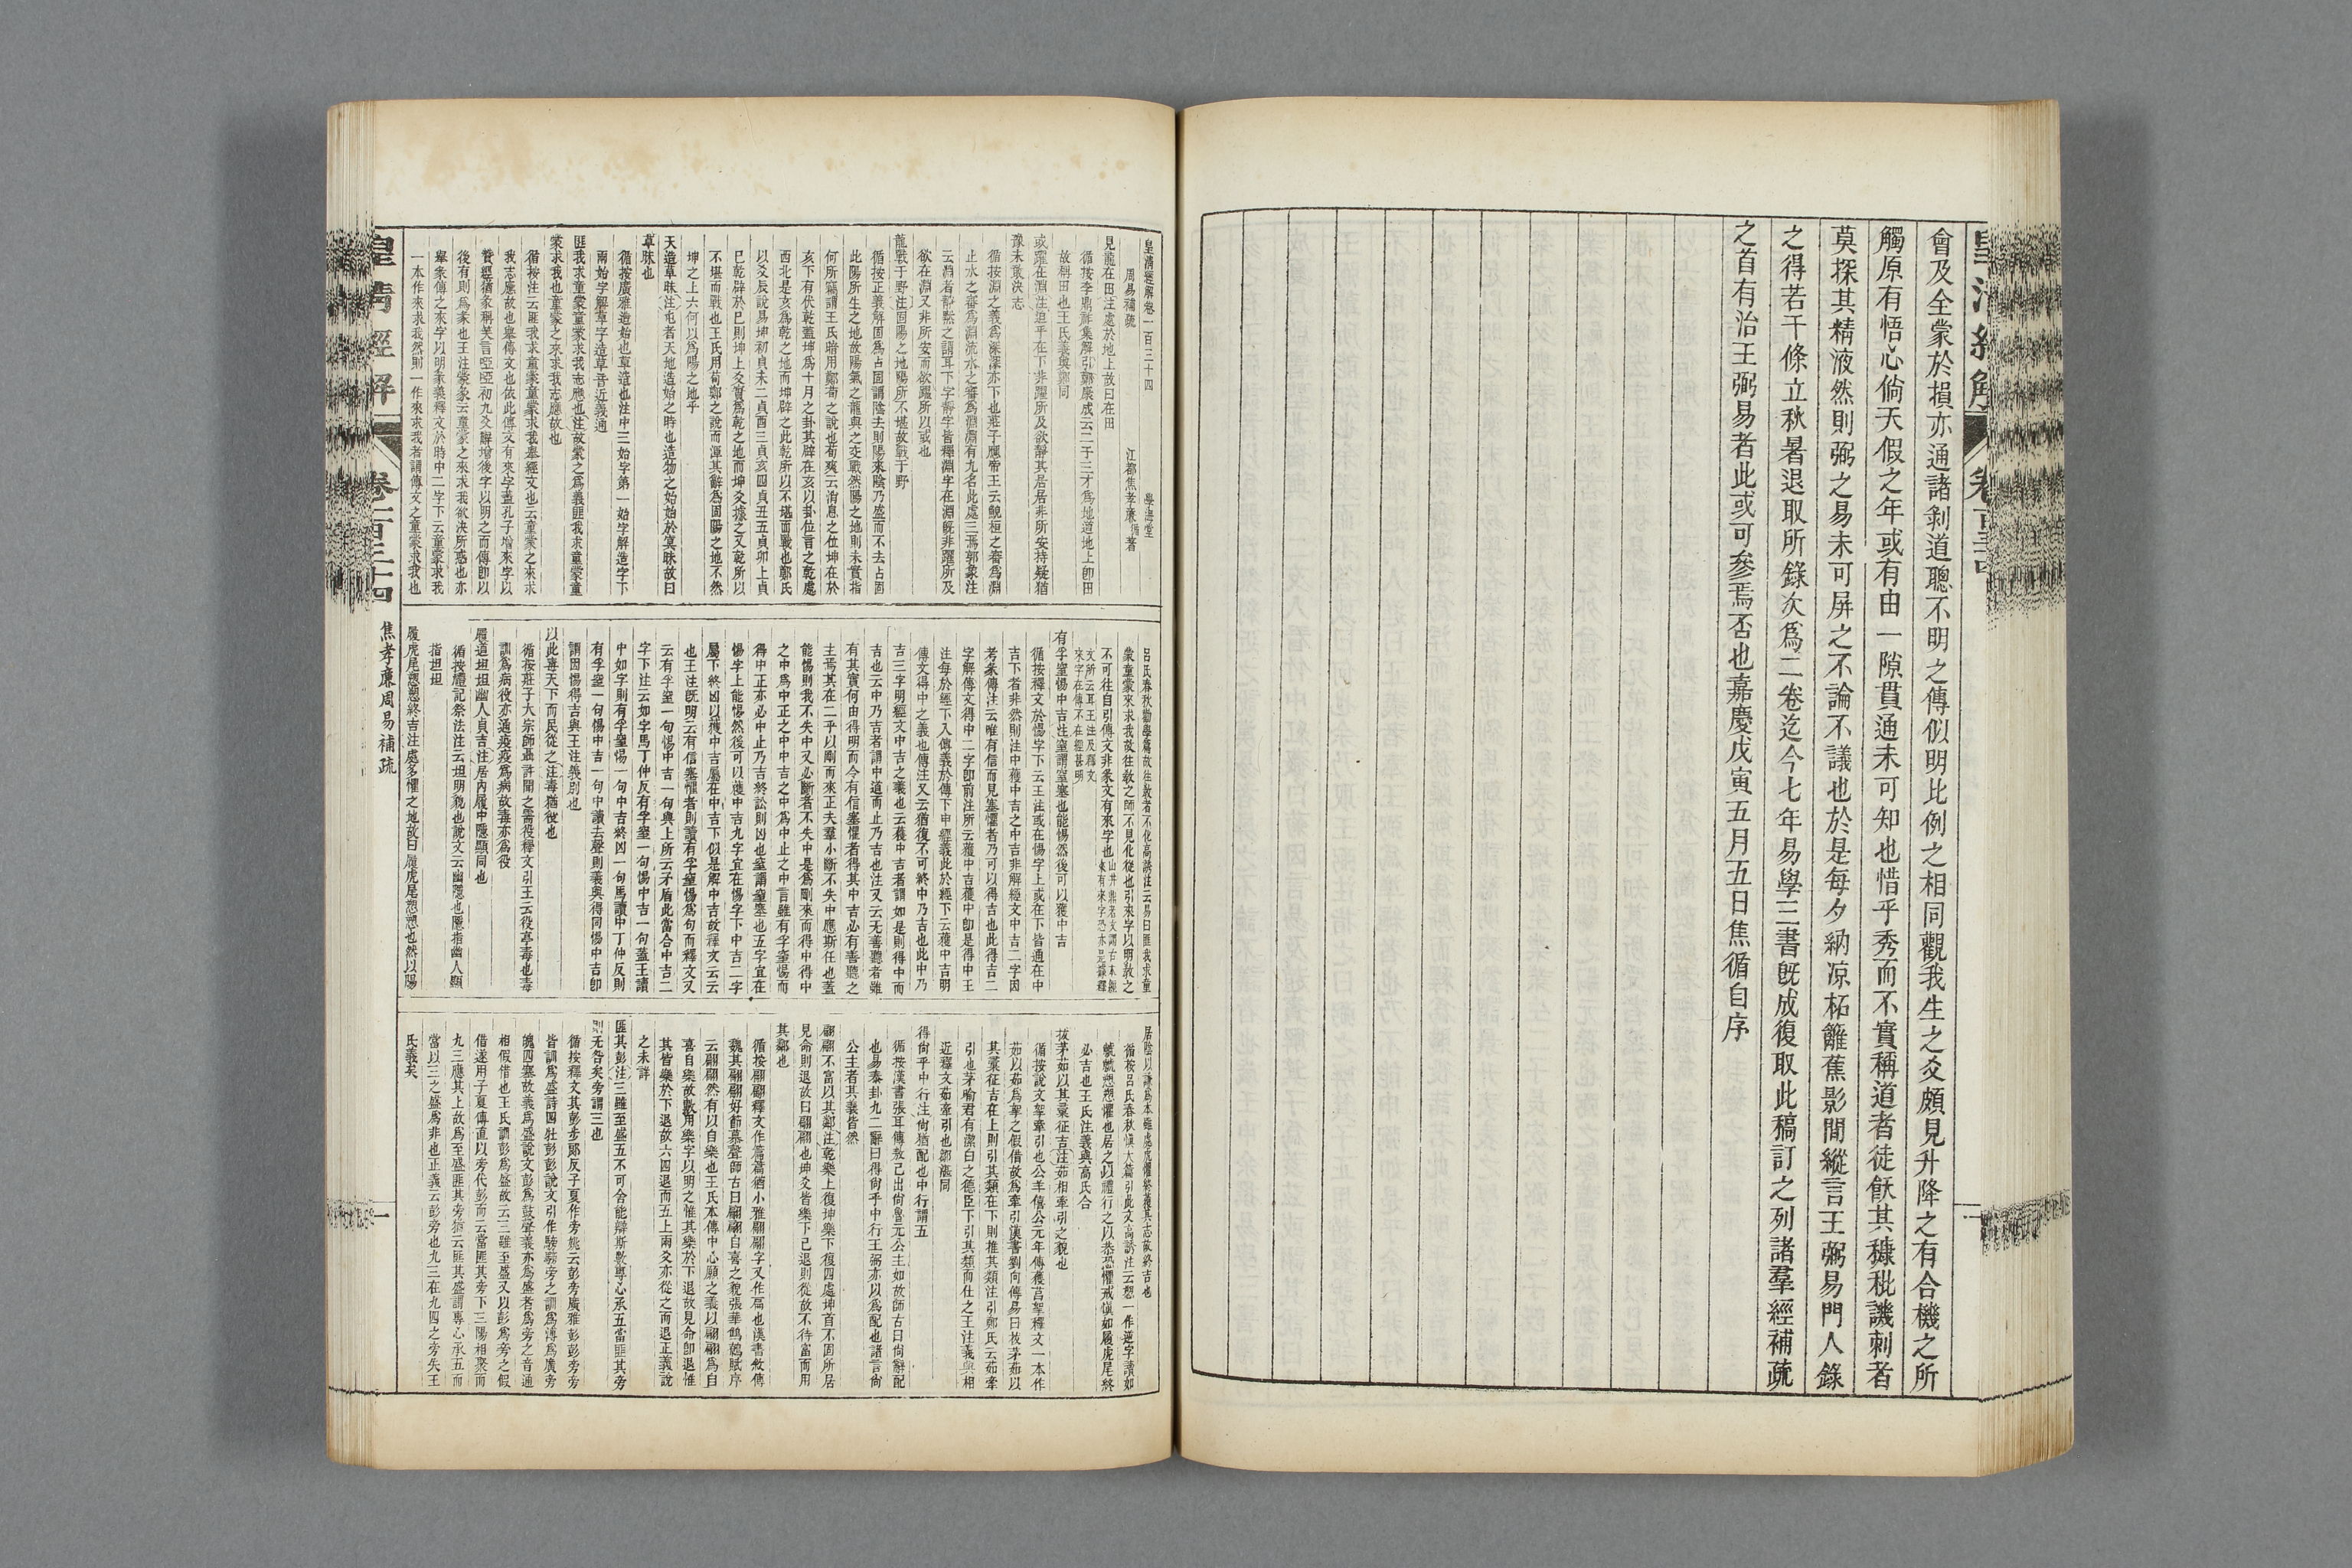 會及全蒙於損亦通諸剝道聰不明之傳似明比例之相同觀我生之爻頗見升降之有合機之所
觸原有悟心倘天假之年或有由一隙貫通未可知也惜乎秀而不實稱道者徒飫其糠秕譏刺者
莫探其精液然則弼之易未可屏之不論不議也於是每夕納凉柘籬蕉影閒縱言王弼易門人錄
之得若干條立秋暑退取所錄次爲二卷迄今七年易學三書既成復取此稿訂之列諸羣經補疏
之首有治王弼易者此或可參焉否也嘉慶戊寅五月五日焦循自序
皇清經解卷一百三十四 學海堂
周易補疏 江都焦孝廉循著
見龍在田注處於地上故曰在田
循按李鼎祚集解引鄭康成云二于三才爲地道地上卽田
故稱田也王氏義與鄭同
或躍在淵注進乎在下非躍所及欲靜其居居非所安持疑猶
豫未敢決志
循按淵之義爲深深亦下也莊子應帝王云鯢桓之審爲淵
止水之審爲淵流水之審爲淵淵有九名此處三焉郭象注
云淵者靜默之謂耳下字靜字皆釋淵字在淵旣非躍所及
欲在淵又非所安而欲躍所以或也
龍戰于野注固陽之地陽所不堪故戰于野
循按正義解固爲占固謂陰去則陽來陰乃盛而不去占固
此陽所生之地故陽氣之龍與之交戰然陽之地則未實指
何所竊謂王氏暗用鄭荀之說也荀爽云消息之位坤在於
亥下有伏乾蓋坤爲十月之卦其辟在亥以卦位言之乾處
西北是亥爲乾之地而坤辟之此乾所以不堪而戰也鄭氏
以爻辰說易坤初貞未二貞酉三貞亥四貞丑五貞卯上貞
巳乾辟於巳則坤上爻實爲乾之地而坤爻據之又乾所以
不堪而戰也王氏用荀鄭之說而渾其辭爲固陽之地不然
坤之上六何以爲陽之地乎
天造草昧注屯者天地造始之時也造物之始始於冥昧故曰
草昧也
循按廣雅造始也草造也注中三始字第一始字解造字下
兩始字解草字造草音近義通
匪我求童蒙童蒙求我志應也注故蒙之爲義匪我求童蒙童
蒙求我也童蒙之來求我志應故也
循按注云匪我求童蒙童蒙求我舉經文也云童蒙之來求
我志應故也舉傳文也依此傳文有來字蓋孔子增來字以
贊經猶彖稱笑言啞啞初九爻辭增後字以明之而傳卽以
後有則爲彖也王注蒙彖云童蒙之來求我欲決所惑也亦
舉彖傳之來字以明彖義釋文於時中二字下云童蒙求我
一本作來求我然則一作來求我者謂傳文之童蒙求我也
呂氏春秋勸學篇故往敎者不化高誘注云易曰匪我求童
蒙童蒙來求我故往敎之師不見化從也引來字以明敎之
不可往自引傳文非彖文有來字也
有孚窒惕中吉注窒謂窒塞也能惕然後可以獲中吉
循按釋文於惕字下云王注或在惕字上或在下皆通在中
吉下者非然則注中獲中吉之中吉非解經文中吉二字因
考彖傳注云唯有信而見塞懼者乃可以得吉也此得吉二
字解傳文得中二字卽前注所云獲中吉獲中卽是得中王
注每於經下入傳義於傳下申經義此於經下云獲中吉明
傳文得中之義也傳注又云猶復不可終中乃吉也此中乃
吉三字明經文中吉之義也云獲中吉者謂如是則得中而
吉也云中乃吉者謂中道而止乃吉也注又云无善聽者雖
有其實何由得明而令有信塞懼者得其中吉必有善聽之
主焉其在二乎以剛而來正夫羣小斷不失中應斯任也蓋
能惕則我不失中又必斷者不失中是爲剛來而得中得中
之中爲中正之中中吉之中爲中止之中言雖有孚窒惕而
得中正亦必中止乃吉終訟則凶也窒謂窒塞也五字宜在
惕字上能惕然後可以獲中吉九字宜在惕字下中吉二字
屬下終凶以獲中吉屬在中吉下似是解中吉故釋文云云
也王注旣明云有信塞懼者則讀有孚窒惕爲句而釋文又
云有孚窒一句惕中吉一句與上所云矛盾此當合中吉二
字下注云如字馬丁仲反有孚窒一句惕中吉一句蓋王讀
中如字則有孚窒惕一句中吉終凶一句馬讀中丁仲反則
有孚窒一句惕中吉一句中讀去聲則義與得同惕中吉卽
謂因惕得吉與王注義別也
以此毒天下而民從之注毒猶役也
循按莊子大宗師聶許聞之需役釋文引王云役亭毒也毒
訓爲病役亦通疫疫爲病故毒亦爲役
履道坦坦幽人貞吉注居內履中隱顯同也
循按禮記祭法注云坦明貌也說文云幽隱也隱指幽人顯
指坦坦
履虎尾愬愬終吉注處多懼之地故曰履虎尾愬愬也然以陽
居陰以謙爲本雖處危懼終獲其志故終吉也
循按呂氏春秋愼大篇引此文高誘注云愬一作逆字讀如
虩虩愬愬懼也居之以禮行之以恭恐懼戒愼如履虎尾終
必吉也王氏注義與高氏合
拔茅茹以其彙征吉注茹相牽引之貌也
循按說文挐牽引也公羊僖公元年傳獲莒挐釋文一本作
茹以茹爲挐之假借故爲牽引漢書劉向傳易曰拔茅茹以
其彙征吉在上則引其類在下則推其類注引鄭氏云茹牽
引也茅喻君有潔白之德臣下引其類而仕之王注義與相
近釋文茹牽引也鄭讀同
得尙乎中行注尙猶配也中行謂五
循按漢書張耳傳敖已出尙魯元公主如故師古曰尙辭配
也易泰卦九二辭曰得尙乎中行王弼亦以爲配也諸言尙
公主者其義皆然
翩翩不富以其鄰注乾樂上復坤樂下復四處坤首不固所居
見命則退故曰翩翩也坤爻皆樂下己退則從故不待富而用
其鄰也
循按翩翩釋文作篇篇猶小雅翩翩字又作扁也漢書敘傳
魏其翩翩好節慕聲師古曰翩翩自喜之貌張華鷦鷯賦序
云翩翩然有以自樂也王氏本傳中心願之義以翩翩爲自
喜自樂故數用樂字以明之惟其樂於下退故見命卽退惟
其皆樂於下退故六四退而五上兩爻亦從之而退正義說
之未詳
匪其彭注三雖至盛五不可舍能辯斯數專心承五當匪其旁
則无咎矣旁謂三也
循按釋文其彭步郎反子夏作旁姚云彭旁廣雅彭彭旁旁
皆訓爲盛詩四牡彭彭說文引作騯騯旁之訓爲溥爲廣旁
魄四塞故義爲盛說文彭爲鼓聲義亦爲盛者爲旁之音通
相假借也王氏謂彭爲盛故云三雖至盛又以彭爲旁之假
借遂用子夏傳直以旁代彭而云當匪其旁下三陽相聚而
九三應其上故爲至盛匪其旁猶云匪其盛謂專心承五而
當以三之盛爲非也正義云彭旁也九三在九四之旁失王
氏義矣
皇清經解 卷一百三十四 焦孝廉周易補疏 一